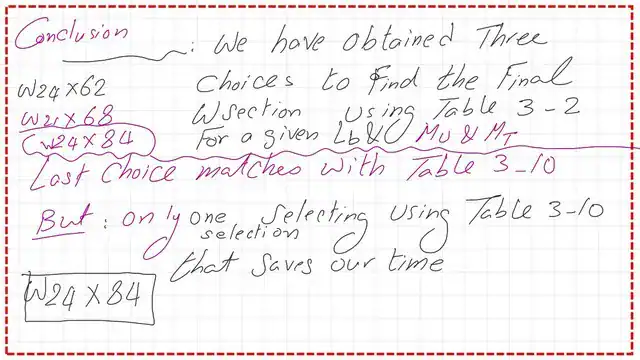 Conclusion : We have obtained Three
W24X62 Choices to Find the Final
W21X68 W section using Table 3-2
W24X84 For a given Lb & MU & MT
Last Choice matches with Table 3-10
But : only one selecting using Table 3-10
selection
that saves our time
W24X84